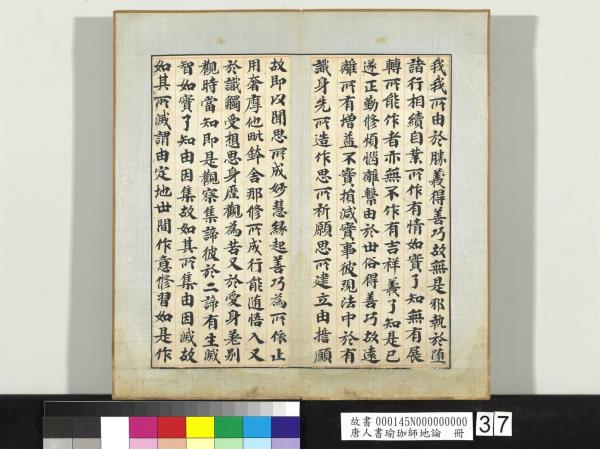 我我所由於勝義得善巧故無是邪執於随
諸行相續自業所作有情如實了知無有展
轉所能作者亦無不作有吉祥義了知是已
遂正勤修煩惱離繫由於世俗得善巧故遠
離所有增益不實損減實事彼現法中於有
識身先所造作思所祈願思所建立由擔願
故即以聞思所成妙慧緣起善巧為所依止
用奢摩他毗鉢舍那修所成行能随悟入又
於識觸受想思身歷觀為苦又於愛身差别
觀時當知即是觀察集諦彼於二諦有生滅
智如實了知由因集故如其所集由因滅故
如其所滅謂由定地世間作意修習如是作
故書 000145N000000000
唐人書瑜珈師地論 冊
37